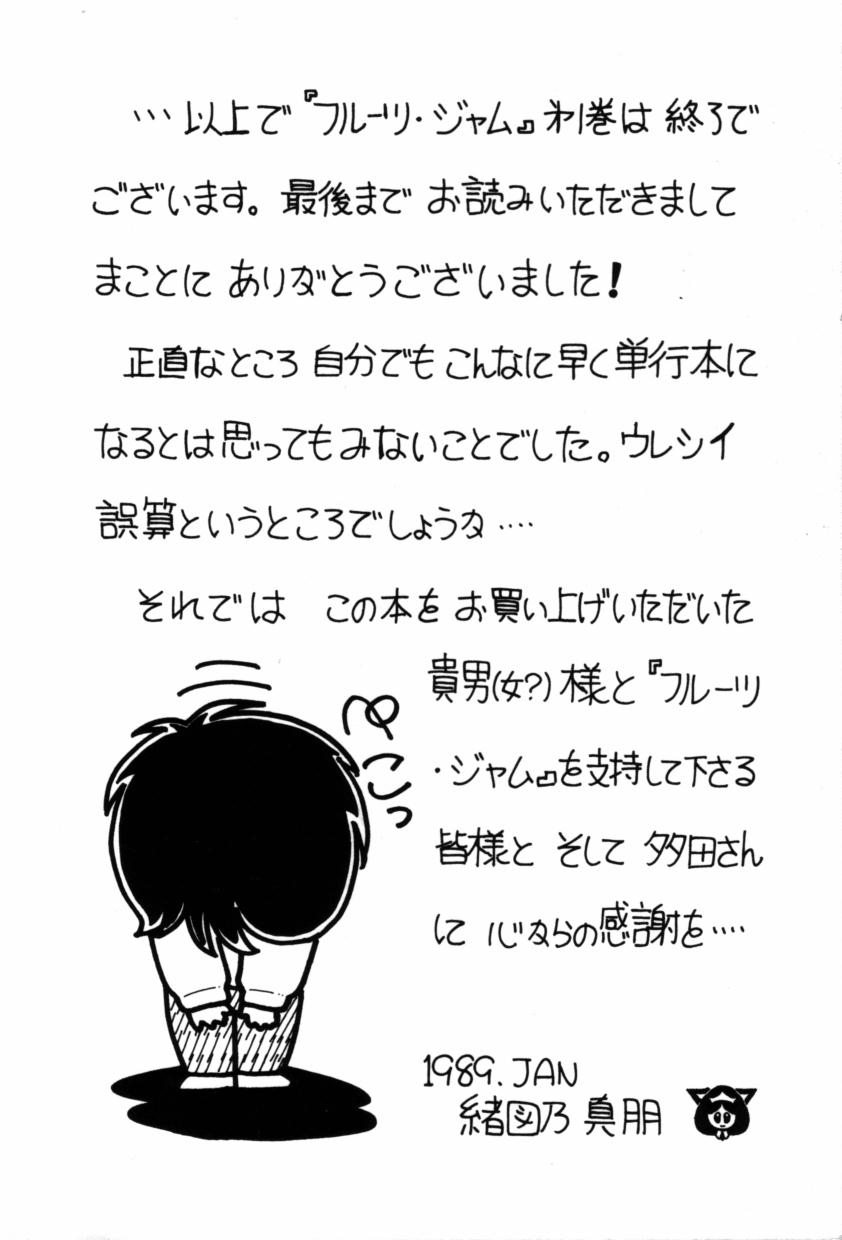 …以上で『フルーツ・ジャム』第1巻は 終了で
ございます。最後まで お読みいただきまして
まことに ありがとうございました!
正直なところ 自分でも こんなに 早く 単行本に
なるとは思ってもみないことでした。ウレシイ
誤算というところでしょうか‥‥
それでは この本を お買い上げいただいた
貴男(女?)様と『フルーツ
・ジャム』を支持して下さる
皆様と そして 多田さん
に 心からの感謝を‥‥
ぺこっ
1989. JAN
緒図乃 真朋